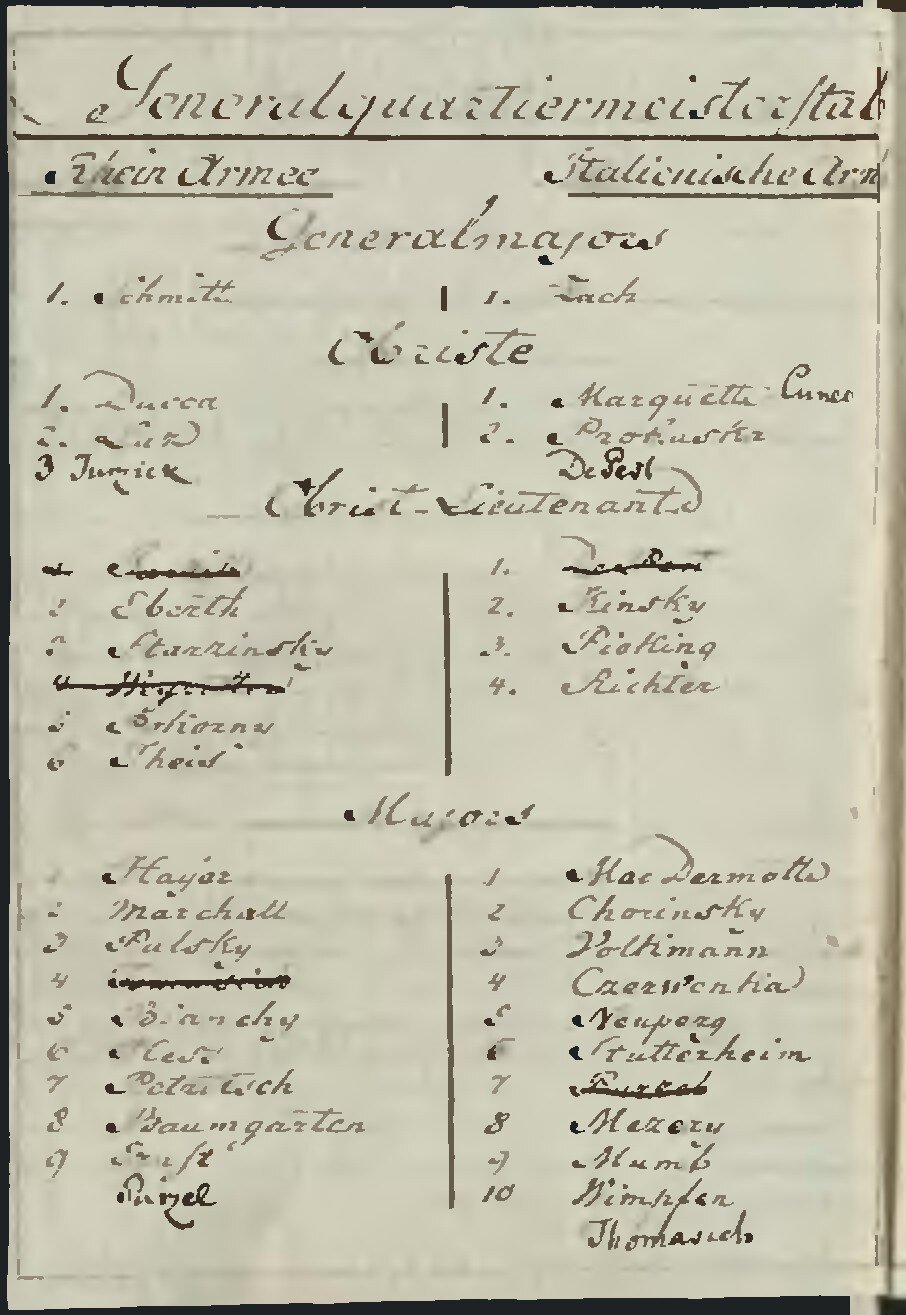 Generalquartiermeisterstab
Rhein Armee Italienische Arm
Generalmajors
1. Schmitt 1. Zach
Obriste
1. Ducca 1. Marquette
2. 2. Prohaska
3
Obrist-Lieutenants
1.
2 Eberth 2. Kinsky
3 Starzinsky 3. Ficking
4 4. Richter
5 Skorny
6 Theis
Majors
1 Mayer 1 Mac Dermott
2 Marchall 2 Chorinsky
3 Pulsky 3 Volkmann
4 4
5 Bianchy 5 Neuperg
6 6 Stutterheim
7 Petritsch 7
8 Baumgarten 8 Mezery
9 9 Mumb
Purzel 10 Wimpfen
Thomasich